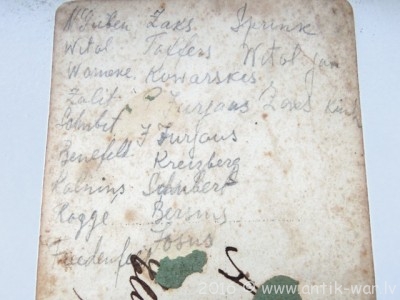 Gruben Zaks Sprink
Witol Taffens Witol Jan
Warneke Kowarskis
Zalit Jurjaus Zaks Kirk
Schubit J. Jurjaus
Benefeld Kreizberg
Kalnins Schubert
Kagge Bersins
Friedenfe Josus
2016 © www.antik-war.lv